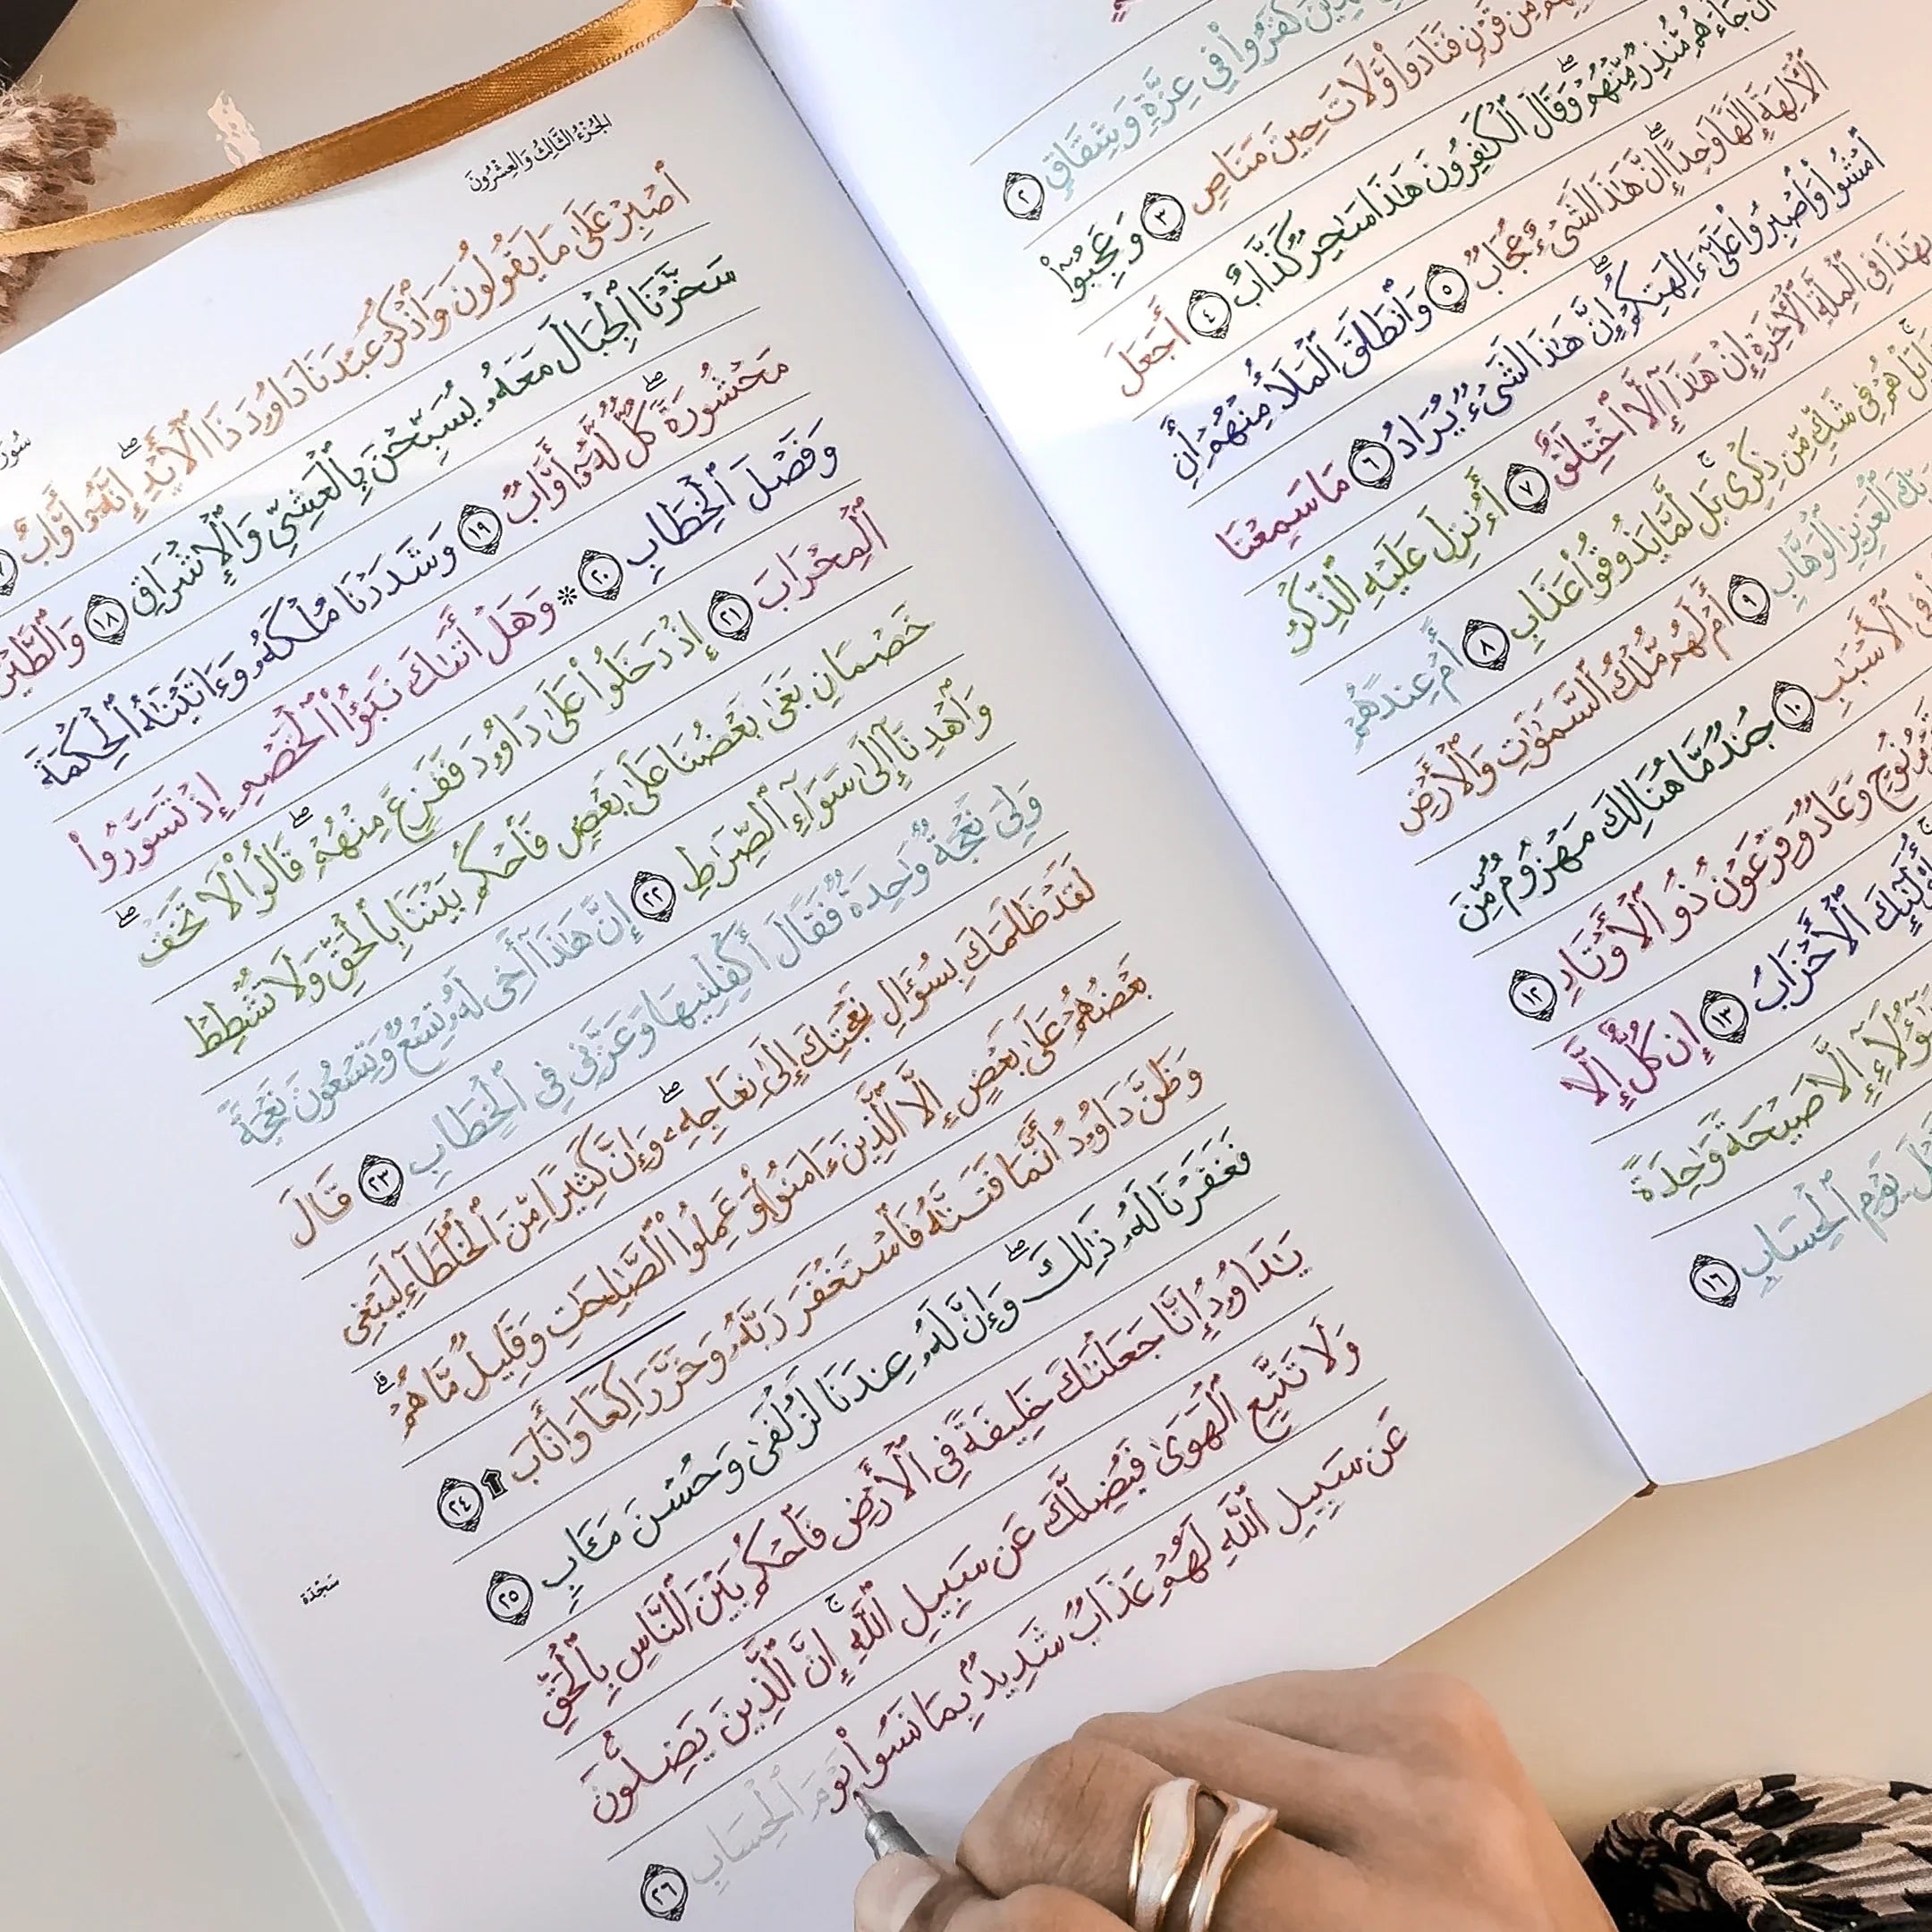 كَفَرُوا۟ فِى عِزَّةٍ وَشِقَاقٍ ٢
مِن قَرْنٍ فَنَادَوا۟ وَّلَاتَ حِينَ مَنَاصٍ ٣ وَعَجِبُوٓا۟
أَن جَآءَهُم مُّنذِرٌ مِّنْهُمْ ۖ وَقَالَ ٱلْكَـٰفِرُونَ هَـٰذَا سَـٰحِرٌ كَذَّابٌ ٤ أَجَعَلَ
ٱلْـَٔالِهَةَ إِلَـٰهًا وَٰحِدًا ۖ إِنَّ هَـٰذَا لَشَىْءٌ عُجَابٌ ٥ وَٱنطَلَقَ ٱلْمَلَأُ مِنْهُمْ أَنِ
ٱمْشُوا۟ وَٱصْبِرُوا۟ عَلَىٰٓ ءَالِهَتِكُمْ ۖ إِنَّ هَـٰذَا لَشَىْءٌ يُرَادُ ٦ مَا سَمِعْنَا
بِهَـٰذَا فِى ٱلْمِلَّةِ ٱلْـَٔاخِرَةِ إِنْ هَـٰذَآ إِلَّا ٱخْتِلَـٰقٌ ٧ أَءُنزِلَ عَلَيْهِ ٱلذِّكْرُ
بَلْ هُمْ فِى شَكٍّ مِّن ذِكْرِى ۖ بَل لَّمَّا يَذُوقُوا۟ عَذَابِ ٨ أَمْ عِندَهُمْ
ٱلْعَزِيزِ ٱلْوَهَّابِ ٩ أَمْ لَهُم مُّلْكُ ٱلسَّمَـٰوَٰتِ وَٱلْأَرْضِ
فِى ٱلْأَسْبَـٰبِ ١٠ جُندٌ مَّا هُنَالِكَ مَهْزُومٌ مِّنَ
نُوحٍ وَعَادٌ وَفِرْعَوْنُ ذُو ٱلْأَوْتَادِ ١٢
أُو۟لَـٰٓئِكَ ٱلْأَحْزَابُ ١٣ إِن كُلٌّ إِلَّا
هَـٰٓؤُلَآءِ إِلَّا صَيْحَةً وَٰحِدَةً
يَوْمِ ٱلْحِسَابِ ١٦
الجُزْءُ الثَّالِثُ وَالعِشْرُونَ
ٱصْبِرْ عَلَىٰ مَا يَقُولُونَ وَٱذْكُرْ عَبْدَنَا دَاوُۥدَ ذَا ٱلْأَيْدِ ۖ إِنَّهُۥٓ أَوَّابٌ
سَخَّرْنَا ٱلْجِبَالَ مَعَهُۥ يُسَبِّحْنَ بِٱلْعَشِىِّ وَٱلْإِشْرَاقِ ١٨ وَٱلطَّيْرَ
مَحْشُورَةً ۖ كُلٌّ لَّهُۥٓ أَوَّابٌ ١٩ وَشَدَدْنَا مُلْكَهُۥ وَءَاتَيْنَـٰهُ ٱلْحِكْمَةَ
وَفَصْلَ ٱلْخِطَابِ ٢٠ * وَهَلْ أَتَىٰكَ نَبَؤُا۟ ٱلْخَصْمِ إِذْ تَسَوَّرُوا۟
ٱلْمِحْرَابَ ٢١ إِذْ دَخَلُوا۟ عَلَىٰ دَاوُۥدَ فَفَزِعَ مِنْهُمْ ۖ قَالُوا۟ لَا تَخَفْ ۖ
خَصْمَانِ بَغَىٰ بَعْضُنَا عَلَىٰ بَعْضٍ فَٱحْكُم بَيْنَنَا بِٱلْحَقِّ وَلَا تُشْطِطْ
وَٱهْدِنَآ إِلَىٰ سَوَآءِ ٱلصِّرَٰطِ ٢٢ إِنَّ هَـٰذَآ أَخِى لَهُۥ تِسْعٌ وَتِسْعُونَ نَعْجَةً
وَلِىَ نَعْجَةٌ وَٰحِدَةٌ فَقَالَ أَكْفِلْنِيهَا وَعَزَّنِى فِى ٱلْخِطَابِ ٢٣ قَالَ
لَقَدْ ظَلَمَكَ بِسُؤَالِ نَعْجَتِكَ إِلَىٰ نِعَاجِهِۦ ۖ وَإِنَّ كَثِيرًا مِّنَ ٱلْخُلَطَآءِ لَيَبْغِى
بَعْضُهُمْ عَلَىٰ بَعْضٍ إِلَّا ٱلَّذِينَ ءَامَنُوا۟ وَعَمِلُوا۟ ٱلصَّـٰلِحَـٰتِ وَقَلِيلٌ مَّا هُمْ ۗ
وَظَنَّ دَاوُۥدُ أَنَّمَا فَتَنَّـٰهُ فَٱسْتَغْفَرَ رَبَّهُۥ وَخَرَّ رَاكِعًا وَأَنَابَ ٢٤
فَغَفَرْنَا لَهُۥ ذَٰلِكَ ۖ وَإِنَّ لَهُۥ عِندَنَا لَزُلْفَىٰ وَحُسْنَ مَـَٔابٍ ٢٥
يَـٰدَاوُۥدُ إِنَّا جَعَلْنَـٰكَ خَلِيفَةً فِى ٱلْأَرْضِ فَٱحْكُم بَيْنَ ٱلنَّاسِ بِٱلْحَقِّ
وَلَا تَتَّبِعِ ٱلْهَوَىٰ فَيُضِلَّكَ عَن سَبِيلِ ٱللَّهِ ۚ إِنَّ ٱلَّذِينَ يَضِلُّونَ
عَن سَبِيلِ ٱللَّهِ لَهُمْ عَذَابٌ شَدِيدٌۢ بِمَا نَسُوا۟ يَوْمَ ٱلْحِسَابِ ٢٦
سَجْدَة